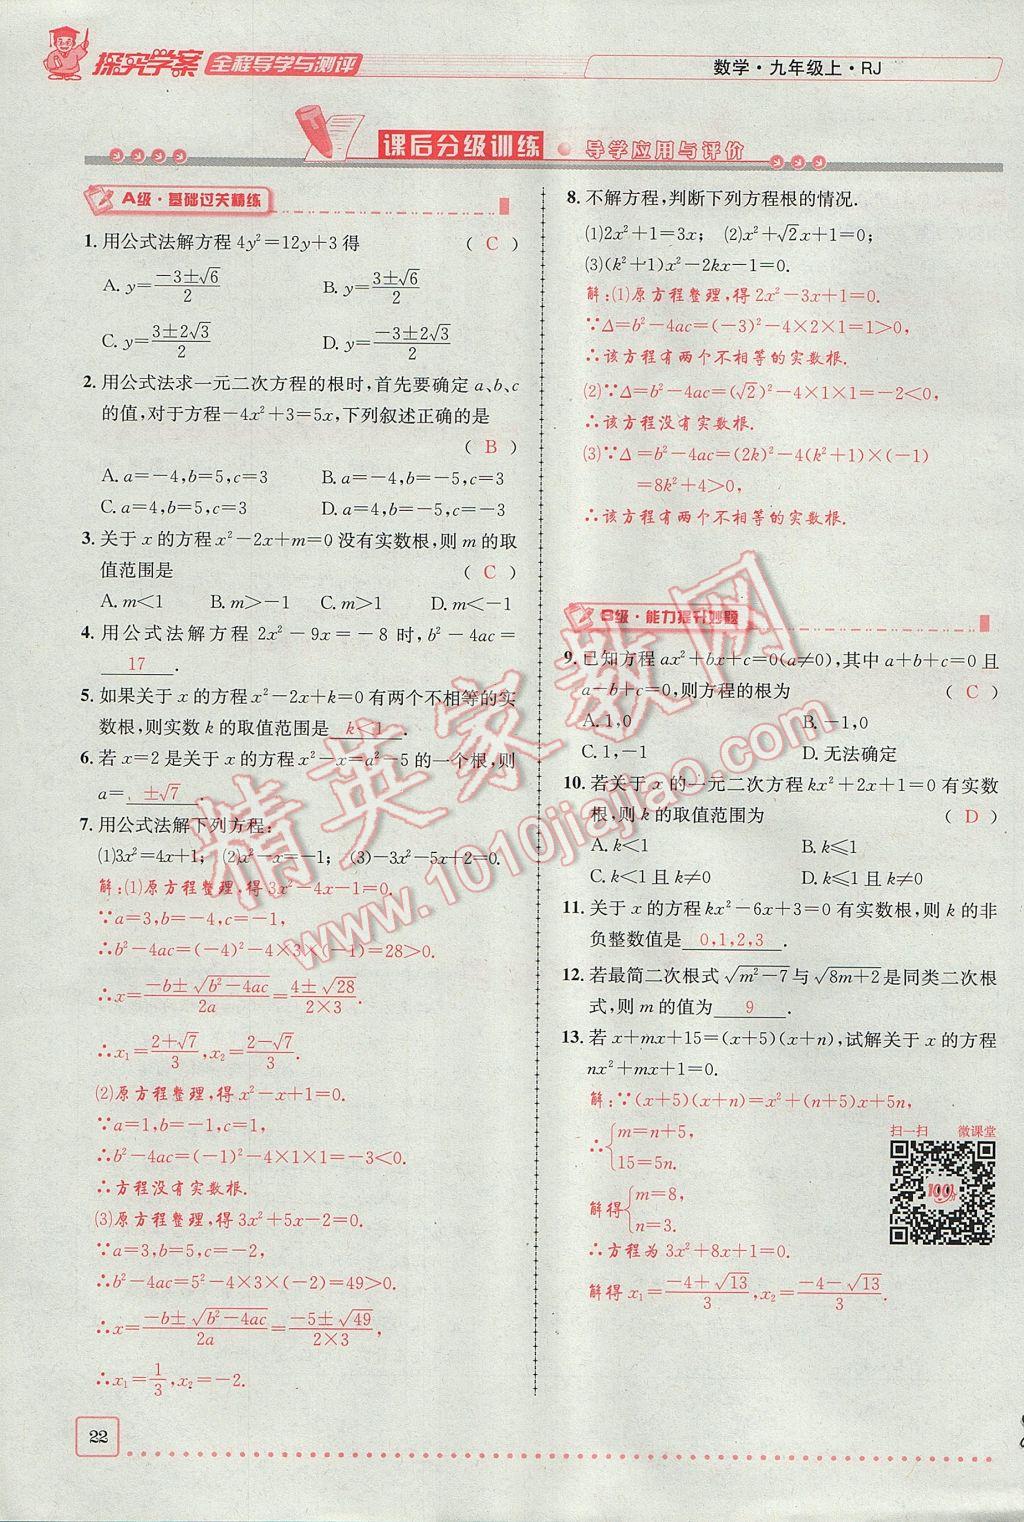 探究学案 全程导学与测评
数学·九年级上·RJ
课后分级训练 导学应用与评价
A级·基础过关精练
1. 用公式法解方程 4y²=12y+3 得 ( C )
A. y=(-3±√6)/2 B. y=(3±√6)/2
C. y=(3±2√3)/2 D. y=(-3±2√3)/2
2. 用公式法求一元二次方程的根时,首先要确定 a、b、c
的值,对于方程-4x²+3=5x,下列叙述正确的是
( B )
A. a=-4,b=5,c=3 B. a=-4,b=-5,c=3
C. a=4,b=5,c=3 D. a=4,b=-5,c=-3
3. 关于 x 的方程 x²-2x+m=0 没有实数根,则 m 的取
值范围是 ( C )
A. m<1 B. m>-1 C. m>1 D. m<-1
4. 用公式法解方程 2x²-9x=-8 时, b²-4ac=
17 .
5. 如果关于 x 的方程 x²-2x+k=0 有两个不相等的实
数根,则实数 k 的取值范围是 k<1 .
6. 若 x=2 是关于 x 的方程 x²-x=a²-5 的一个根,则
a= ±√7 .
7. 用公式法解下列方程:
(1)3x²=4x+1; (2)x²-x=-1; (3)-3x²-5x+2=0.
解:(1)原方程整理,得 3x²-4x-1=0.
∵a=3,b=-4,c=-1,
∴b²-4ac=(-4)²-4×3×(-1)=28>0.
∴x=(-b±√(b²-4ac))/2a=(4±√28)/(2×3).
∴x₁=(2+√7)/3,x₂=(2-√7)/3.
(2)原方程整理,得 x²-x+1=0.
∵a=1,b=-1,c=1,
∴b²-4ac=(-1)²-4×1×1=-3<0.
∴方程没有实数根.
(3)原方程整理,得 3x²+5x-2=0.
∵a=3,b=5,c=-2,
∴b²-4ac=5²-4×3×(-2)=49>0.
∴x=(-b±√(b²-4ac))/2a=(-5±√49)/(2×3),
∴x₁=1/3,x₂=-2.
22
8. 不解方程,判断下列方程根的情况.
(1)2x²+1=3x; (2)x²+√2x+1=0;
(3)(k²+1)x²-2kx-1=0.
解:(1)原方程整理,得 2x²-3x+1=0.
∵Δ=b²-4ac=(-3)²-4×2×1=1>0,
∴该方程有两个不相等的实数根.
(2)∵Δ=b²-4ac=(√2)²-4×1×1=-2<0,
∴该方程没有实数根.
(3)∵Δ=b²-4ac=(2k)²-4(k²+1)×(-1)
=8k²+4>0,
∴该方程有两个不相等的实数根.
B级·能力提升妙题
9. 已知方程 ax²+bx+c=0(a≠0),其中 a+b+c=0 且
a-b+c=0,则方程的根为 ( C )
A. 1,0 B. -1,0
C. 1,-1 D. 无法确定
10. 若关于 x 的一元二次方程 kx²+2x+1=0 有实数
根,则 k 的取值范围为 ( D )
A. k<1 B. k≤1
C. k<1 且 k≠0 D. k≤1 且 k≠0
11. 关于 x 的方程 kx²-6x+3=0 有实数根,则 k 的非
负整数值是 0,1,2,3 .
12. 若最简二次根式 √(m²-7) 与 √(8m+2) 是同类二次根
式,则 m 的值为 9 .
13. 若 x+mx+15=(x+5)(x+n),试解关于 x 的方程
nx²+mx+1=0.
解:∵(x+5)(x+n)=x²+(5+n)x+5n,
∴{m=n+5,
15=5n.
解得{m=8,
n=3.
∴方程为 3x²+8x+1=0.
解得 x₁=(-4+√13)/3,x₂=(-4-√13)/3.
扫一扫 微课堂
100分
精英家教网
www.1010jiajiao.com